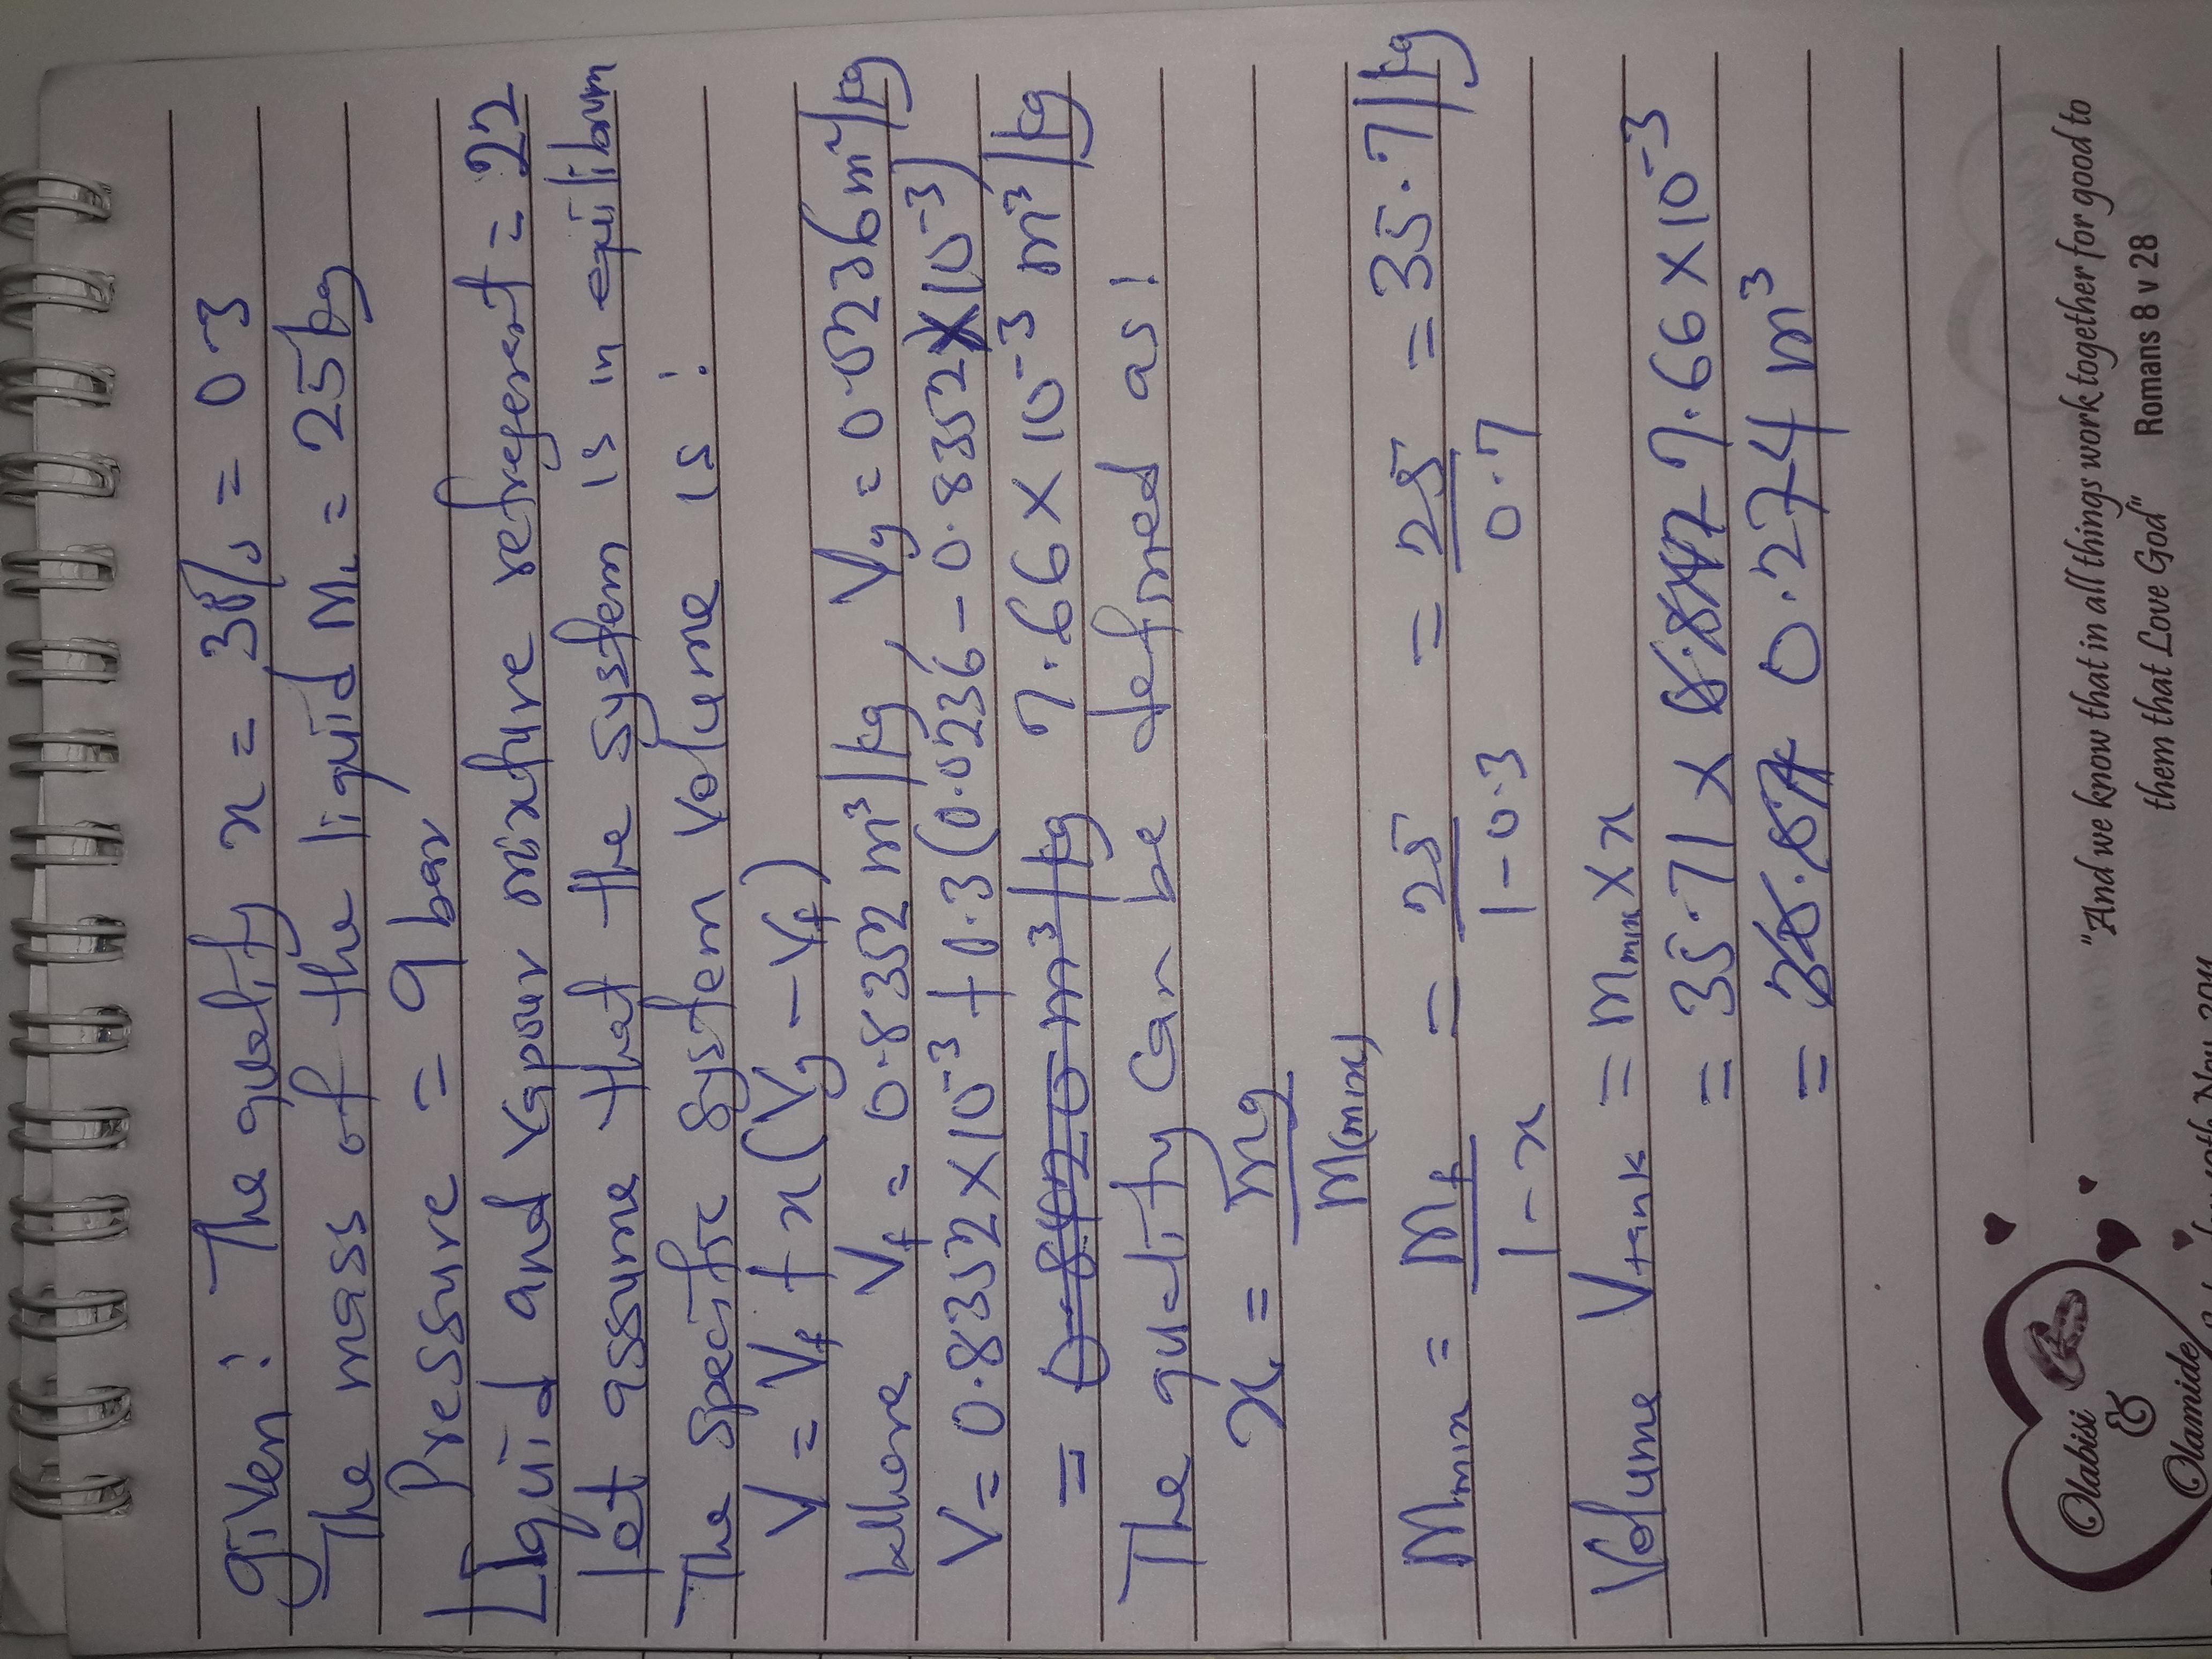 given: The quality x = 30% = 0.3
The mass of the liquid ML = 25kg
Pressure = 9 bar
Liquid and vapour mixture refregerent = 22
let assume that the system is in equilibrum
The specific system volume is:
V = Vf + x(Vg - Vf)
Where Vf = 0.8352 m³/kg, Vg = 0.0236 m³/kg
V = 0.8352 × 10⁻³ + 0.3(0.0236 - 0.8352 × 10⁻³)
= 7.66 × 10⁻³ m³/kg
The quality can be defined as:
x = mg / M(mix)
Mmix = Mf / 1-x = 25 / 1-0.3 = 25 / 0.7 = 35.71kg
Volume Vtank = Mmix × x
= 35.71 × 7.66 × 10⁻³
= 0.274 m³
"And we know that in all things work together for good to
them that Love God" Romans 8 v 28
Olabisi
&
Olamide